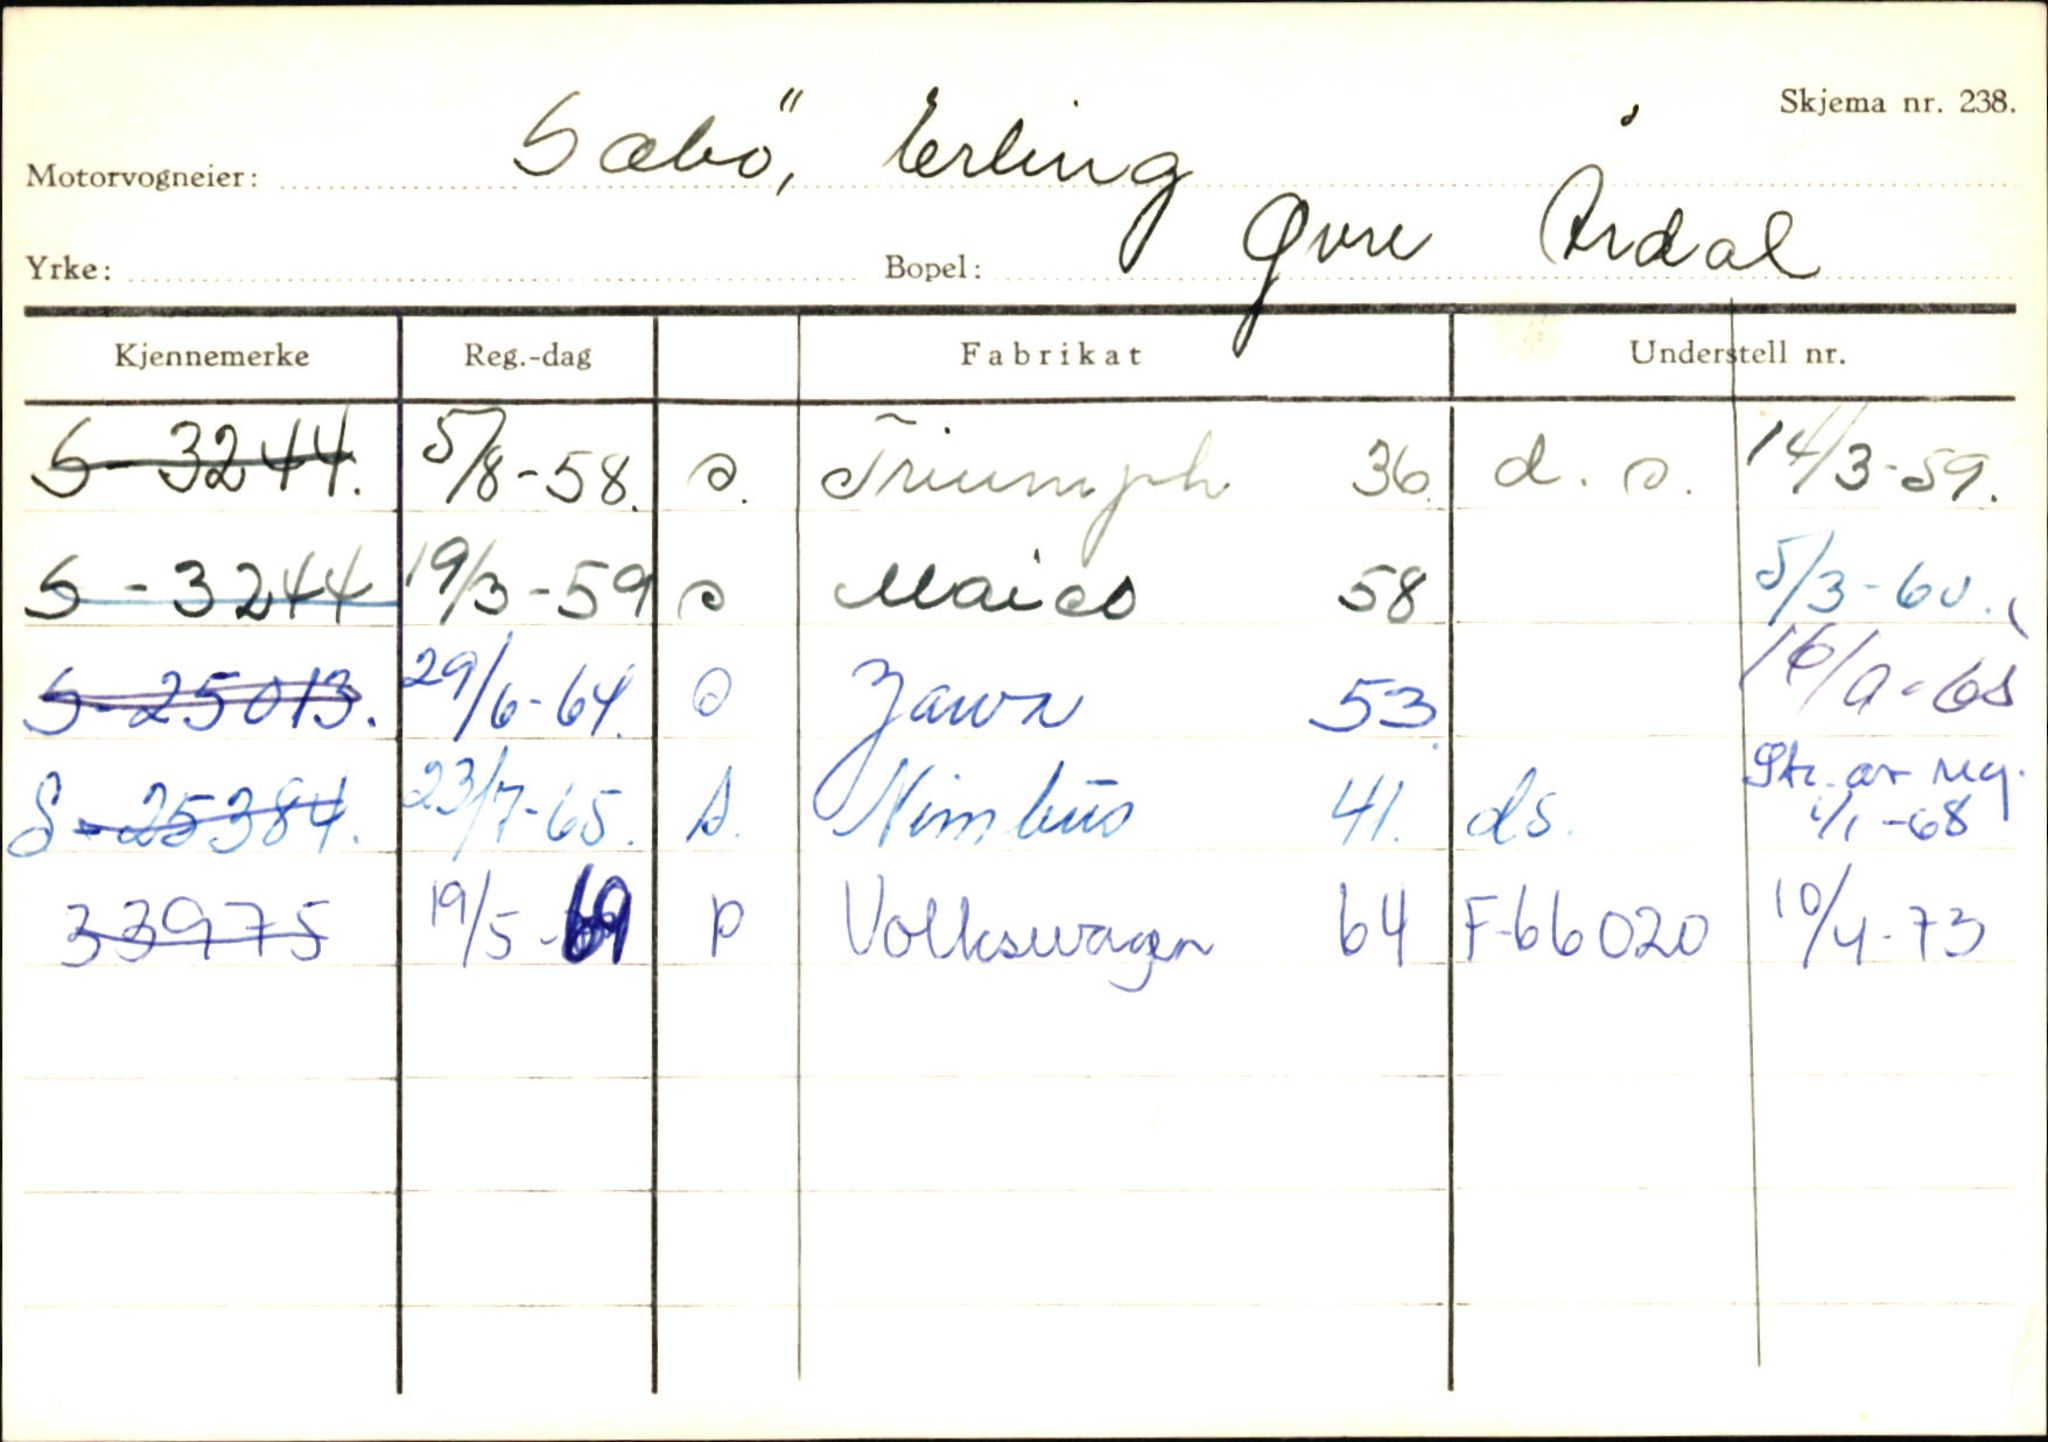 Skjema nr. 238.
Motorvogneier: Sæbö, Erling
Yrke: Bopel: Øvre Årdal
Kjennemerke Reg.-dag Fabrikat Understell nr.
S-3244. 5/8-58. s. Triumph 36. d. s. 14/3-59.
S-3244 19/3-59 s Maico 58 5/3-60.
S-25013. 29/6-64. s Jawa 53. 16/9-65
S-25384. 23/7-65. s. Nimbus 41. ds. Str. av reg. 1/1-68
33975 19/5-69 p Volkswagen 64 F-66020 10/4-73